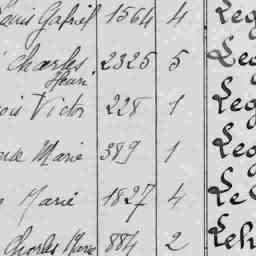 Louis Gabriel 1564 4 Leg
Charles Henri 2325 5 Leg
ois Victor 228 1 Leg
Marie 389 1 Leg
Marie 1827 4 Le
Charles Marie 884 2 Leh